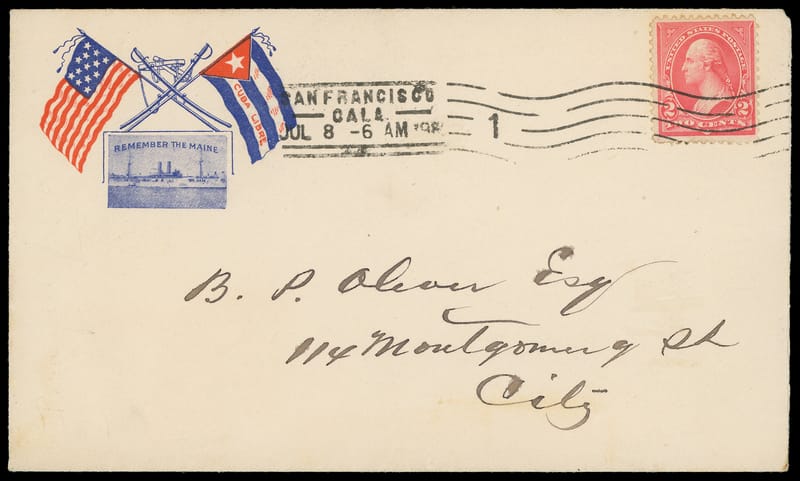 REMEMBER THE MAINE
CUBA LIBRE
SAN FRANCISCO
CALA.
JUL 8 -6 AM '98
1
UNITED STATES POSTAGE
2 2
TWO CENTS
B. P. Oliver Esq
114 Montgomery St
City